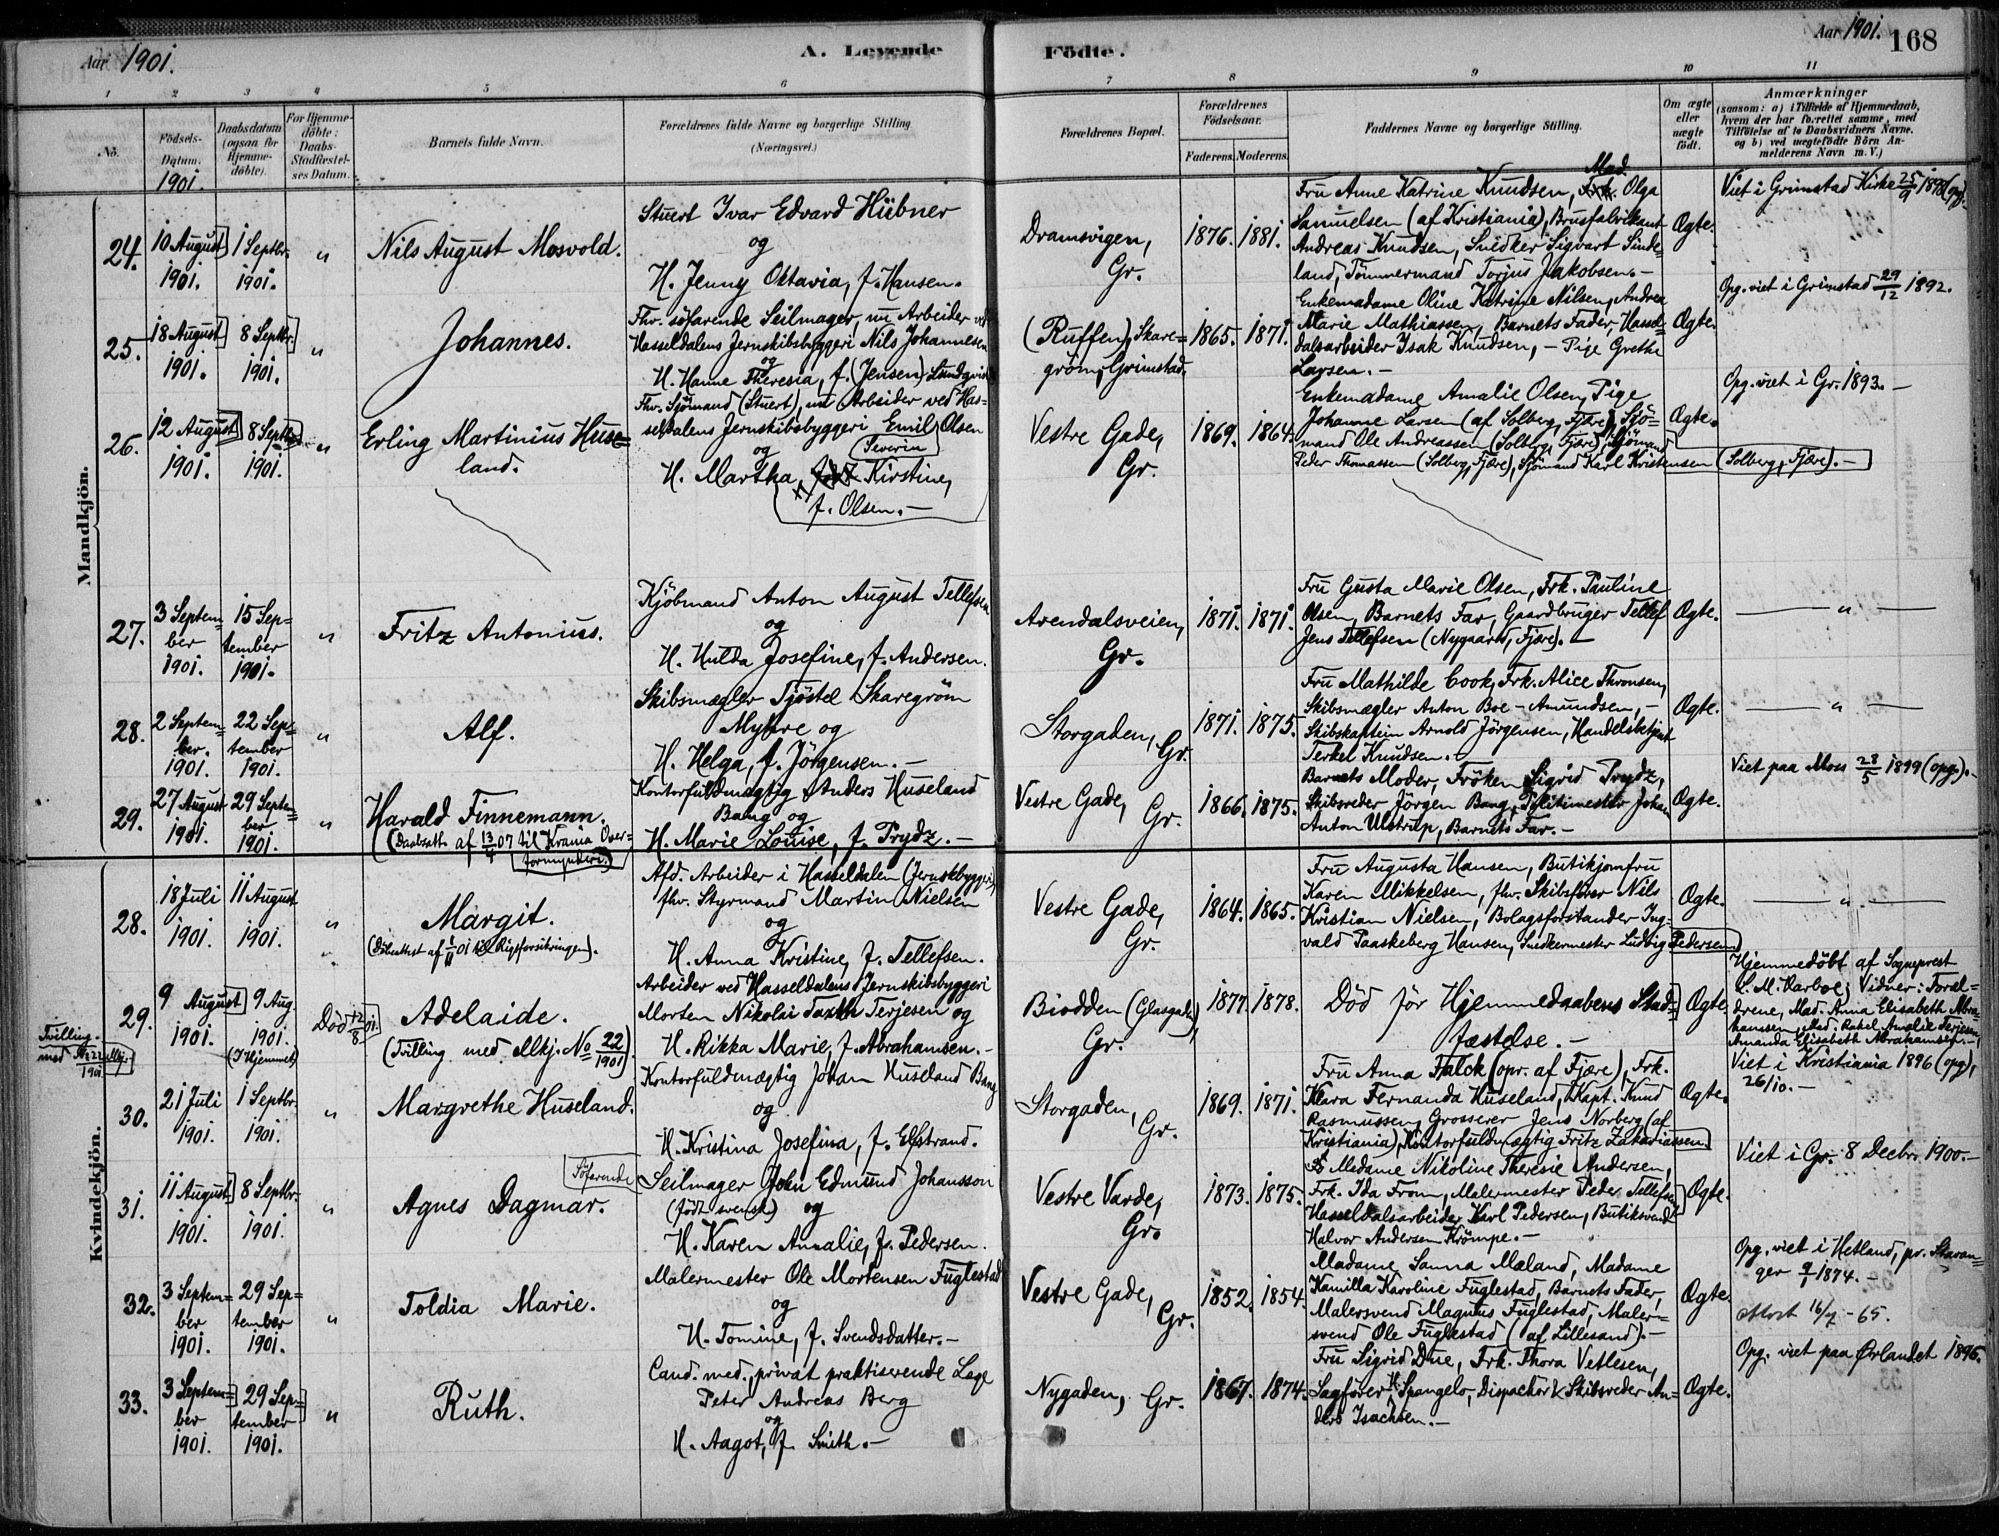 Aar 1901.
A. Levende Födte.
Aar 1901.
168
1 2 3 4 5 6 7 8 9 10 11
No.
Födsels-
Datum.
1901.
Daabsdatum
(ogsaa for
Hjemme-
døbte).
For Hjemme-
döbte:
Daabs-
Stadfæstel-
ses Datum.
Barnets fulde Navn.
Forældrenes fulde Navne og borgerlige Stilling
(Næringsvei.)
Forældrenes Bopæl.
Forældrenes
Födselsaar.
Faderens.
Moderens.
Faddernes Navne og borgerlige Stilling.
Om ægte
eller
uægte
født.
Anmærkninger
(saasom: a) i Tilfælde af Hjemmedaab,
hvem der har forrettet samme, med
Tilföielse af to Daabsvidners Navne.
og b) ved uægtefödte Börn An-
melderens Navn m. V.)
Mandkjön.
24.
10 August
1901.
1 Septbr.
1901.
"
Nils August Mosvold.
Stuert Ivar Edvard Hübner
og
H. Jenny Oktavia, f. Hansen.
Dramsvigen,
Gr.
1876. 1881.
Mad
Fru Anne Katrine Knudsen, Frk. Olga
Samuelsen (af Kristiania), Brusfabrikant
Andreas Knudsen, Snedker Sigvart Sinde-
land, Tömmermand Torjus Jakobsen.-
Ægte.
Viet i Grimstad Kirke 25/9 1898 (opg).
25.
18 August
1901.
8 Septbr.
1901.
"
Johannes.
Fhv. söfarende Seilmager, nu Arbeider ved
Hasseldalens Jernskibsbyggeri Nils Johannesen
og
H. Hanne Theresia, f. (Jensen) Lundqvist
(Ruffen), Skare-
gröm, Grimstad.
1865. 1871.
Enkemadame Oline Katrine Nilsen, Andrea
Marie Mathiassen, Barnets Fader, Hassel-
dalsarbeider Isak Knudsen, - Pige Grethe
Larsen. -
Ægte.
Opg. viet i Grimstad 29/12 1892.
26.
12 August
1901.
8 Septbr.
1901.
"
Erling Martinius Huse-
land.
Fhv. Sjömand (Stuert), nu Arbeider ved Has-
seldalens Jernskibsbyggeri Emil Olsen
og (Severin)
H. Martha, Kirstine,
f. Olsen. -
Vestre Gade,
Gr.
1869. 1864.
Enkemadame Amalie Olsen, Pige
Johanne Larsen (af Solberg, Fjære), Sjö-
mand Ole Andreassen (Solberg, Fjære), Sjömand
Peder Thomassen (Solberg, Fjære), Sjömand Karl Kristensen (Solberg, Fjære). -
Ægte.
Opg. viet i Gr. 1893. -
27.
3 Septem-
ber
1901.
15 Sep-
tember
1901.
"
Fritz Antonius.
Kjöbmand Anton August Tellefsen
og
H. Hulda Josefine, f. Andersen.
Arendalsveien,
Gr.
1871. 1871.
Fru Gusta Marie Olsen, Frk. Pauline
Olsen, Barnets Far, Gaardbruger Tellef
Jens Tellefsen (Nygaard, Fjære). -
Ægte.
— " —
28.
2 Septem-
ber.
1901.
22 Sep-
tember
1901.
"
Alf.
Skibsmægler Tjöstel Skaregröm
Myhre og
H. Helga, f. Jörgensen. -
Storgaden, Gr.
1871. 1875.
Fru Mathilde Cook, Frk. Alice Thronsen,
Skibsmægler Anton Boe-Amundsen, -
Skibskaptein Arnold Jörgensen, Handelsbetjent
Terkel Knudsen. -
Ægte.
— " —
29.
27 August
1901.
29 Septem-
ber
1901.
"
Harald Finnemann.
(Daabsatt. af 13/4 07 til Krania Over-
formynderi.)
Kontorfuldmægtig Anders Huseland
Bang og
H. Marie Louise, f. Prydz. -
Vestre Gade, Gr.
1866. 1875.
Barnets Moder, Fröken Sigrid Prydz,
Skibsreder Jörgen Bang, Politimester Johan
Anton Ulstrup, Barnets Far. -
Ægte.
Viet paa Moss 28/5 1899 (opg). -
Kvindekjön.
28.
18 Juli
1901.
11 August
1901.
"
Margit.
Afd. Arbeider i Hasseldalen (Jernskbyggeri)
fhv. Styrmand Martin Nielsen
og
H. Anna Kristine, f. Tellefsen.
Vestre Gade,
Gr.
1864. 1865.
Fru Augusta Hansen, Butikjomfru
Karen Mikkelsen, fhv. Skibsförer Nils
Kristian Nielsen, Bolagsforstander Ing-
vald Paaskeberg Hansen, Snedkermester Ludvig Pedersen
Ægte.
— " —
Tvilling
med
29.
9 August
1901.
9 Aug.
1901.
(I Hjemmet)
Död 12/8 01.
Adelaide.
(Tvilling med Mkj. No 22/1901).
Arbeider ved Hasseldalens Jernskibsbyggeri
Morten Nikolai Terjesen og
H. Rikka Marie, f. Abrahamsen. -
Biodden (Glasgade),
Gr.
1877. 1878.
Död för Hjemmedaabens Stad-
fæstelse. -
Ægte.
Hjemmedöbt af Sogneprest
C. M. Harboe; Vidner: Foræl-
drene, Mad. Anna Elisabeth Abra-
hamsen, Mad. Rakel Amalie Terjesen,
Amanda Elisabeth Abrahamsen. -
30.
21 Juli
1901.
1 Septbr.
1901.
"
Margrethe Huseland.
Kontorfuldmægtig Johan Huseland Bang
og
H. Kristina Josefina, f. Elfstrand.
Storgaden, Gr.
1869. 1871.
Fru Anna Falck (opr. af Fjære), Frk.
Klara Fernanda Huseland, Kapt. Knud
Rasmussen, Grosserer Jens Norberg (af
Kristiania), Kontorfuldmægtig Fritz Zakariassen.
Ægte.
Viet i Kristiania 1896 (opg),
26/10. -
31.
11 August
1901.
8 Septbr.
1901.
"
Agnes Dagmar.
Söfarende
Seilmager John Edmund Johansson
(født svensk) og
H. Karen Amalie, f. Pedersen.
Vestre Varde,
Gr.
1873. 1875.
Madame Nikoline Theresie Andersen,
Frk. Ida From, Malermester Peder Tellefsen
Hasseldalsarbeider Karl Pedersen, Butiksvend
Halvor Andersen Krömpe. -
Ægte.
Viet i Gr. 8 Decbr. 1900. -
32.
3 Septem-
ber
1901.
29 Sep-
tember
1901.
"
Toldia Marie.
Malermester Ole Mortensen Fuglestad
og
H. Tomine, f. Svendsdatter. -
Vestre Gade,
Gr.
1852. 1854
Madame Sanna Mæland, Madame
Kamilla Karoline Fuglestad, Barnets Fader,
Malersvend Magnus Fuglestad, Maler-
svend Ole Fuglestad (af Lillesand). -
Ægte.
Opg. viet i Hetland, pr. Stavan-
ger 1874. -
Mort 16/7 -65.
33.
3 Septem-
ber
1901.
29 Sep-
tember
1901.
"
Ruth.
Cand. med., privat praktiserende Læge
Peter Andreas Berg
og
H. Aagot, f. Smith. -
Nygaden, Gr.
1867. 1874.
Fru Sigrid Due, Frk. Thora Vetlesen,
Sagförer H. Spangelo, Dispachør & Skibsreder An-
ders Isachsen. -
Ægte.
Opg. viet paa Ørlandet 1896.